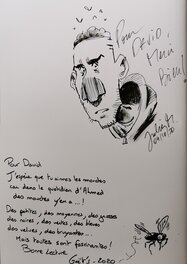 Pour David,
Merci
Pour David
J'espère que tu aimes les mouches
car dans le quotidien d'Ahmed
des mouches y'en a...!
Des petites, des moyennes, des grosses
des noires, des vertes, des bleues
des velues, des bruyantes...
Mais toutes sont fascinantes!
Bonne Lecture
2020